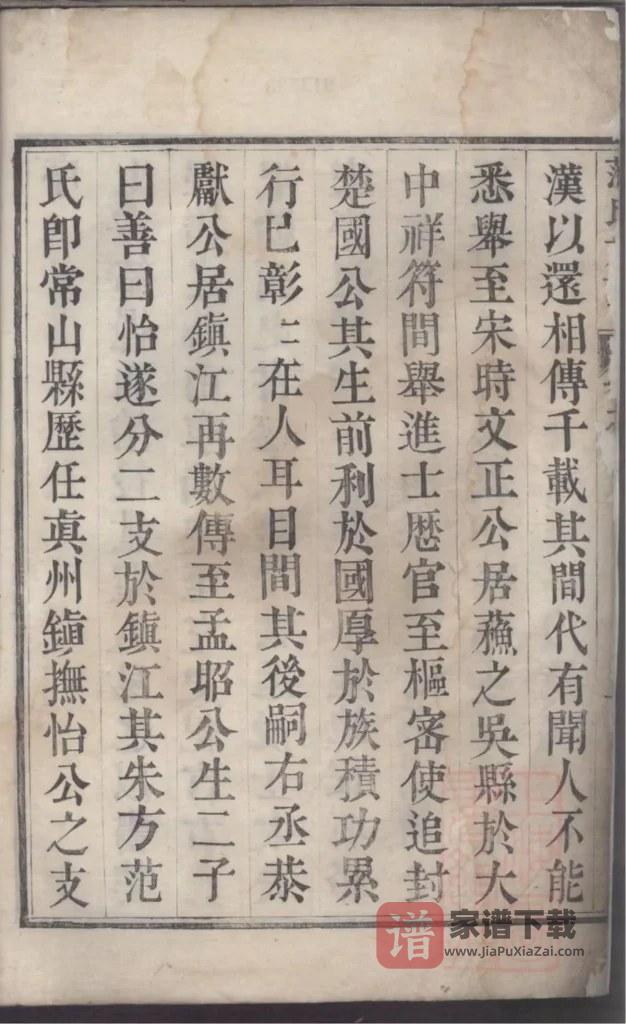 漢以還相傳千載其間代有聞人不能
悉舉至宋時文正公居蘓之吳縣於大
中祥符間舉進士歴官至樞密使追封
楚國公其生前利於國厚於族積功累
行已彰〻在人耳目間其後嗣右丞恭
獻公居鎮江再數傳至孟昭公生二子
曰善曰怡遂分二支於鎮江其朱方范
氏卽常山縣歷任眞州鎭撫怡公之支
谱
家谱下载
www.JiaPuXiaZai.com